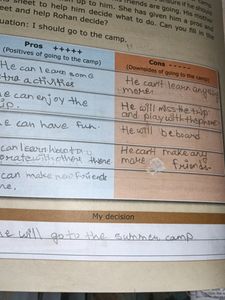 up to him. She has given him a
sheet to help him decide what to do. Can you fill in the
eet and help Rohan decide?
uation: I should go to the camp.
Pros +++++
(Positives of going to the camp)
Cons -----
(Downsides of going to the camp)
He can learn some
activities
He can't learn anything
more.
e can enjoy the
ip.
He will miss the trip
and play with the phone
e can have fun.
He will be board
can learn how to
with others there
He can't make any
more friends
can make new friends
My decision
e will go to the summer camp